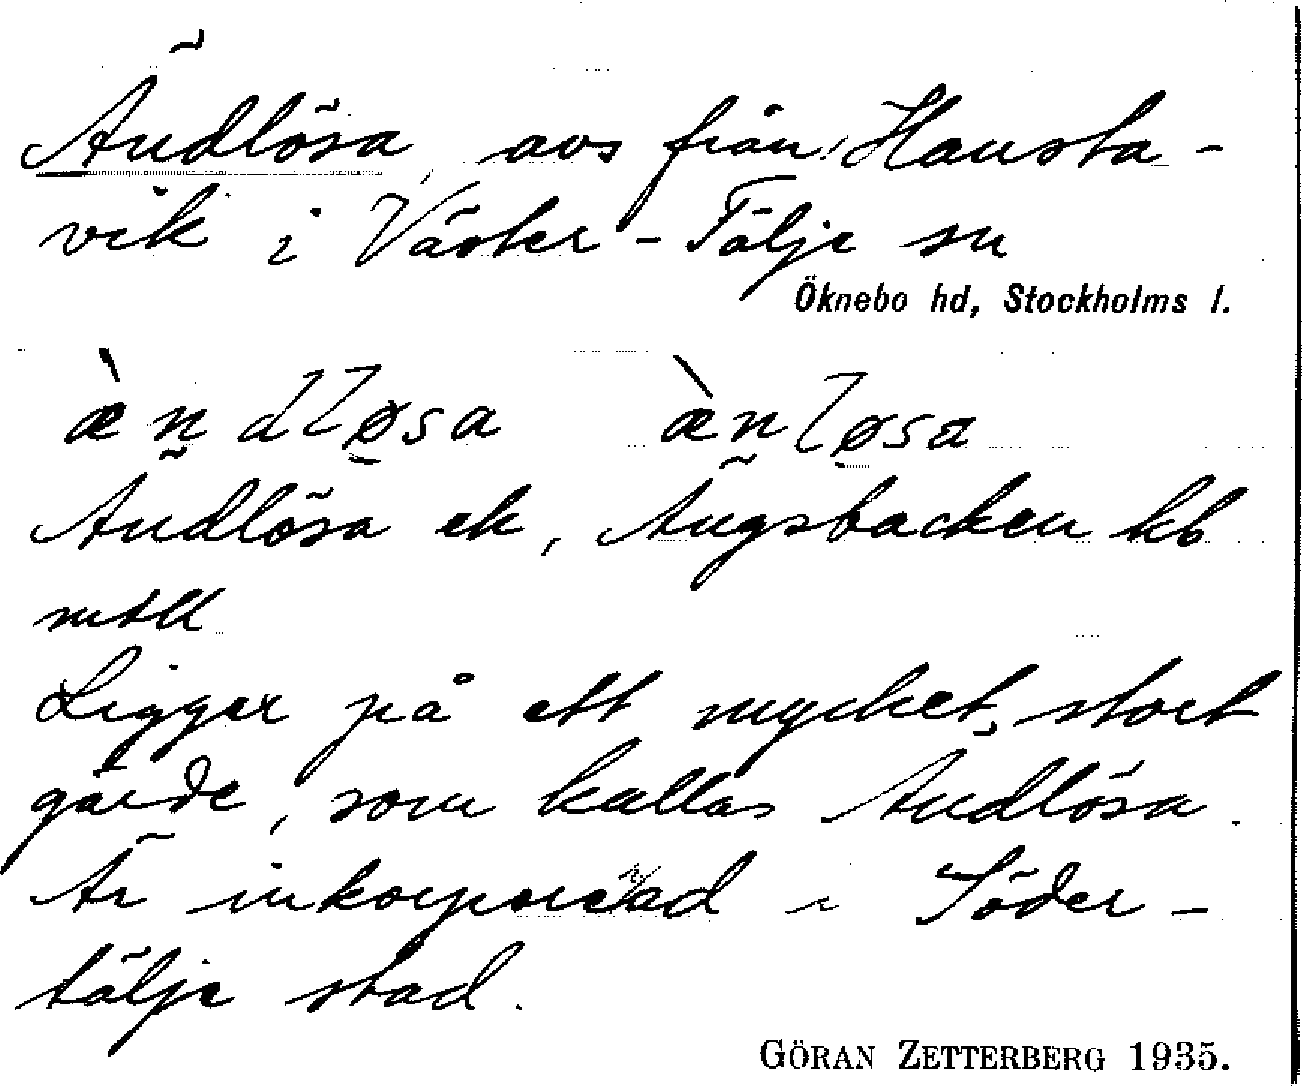 Ändlösa, avs från Hansta-
vik i Väster-Tälje sn
Öknebo hd, Stockholms l.
æ̀ndløsa æ̀nløsa
Ändlösa ek, Ängsbacken kb
mtll
Ligger på ett mycket stort
gärde, som kallas Ändlösa.
Är inkorporerad i Söder-
tälje stad.
GÖRAN ZETTERBERG 1935.